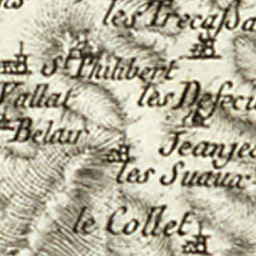 les Trecassa
St Philibert
Vallat
les Defeci
Belair
Jeanje
les Suaux
le Collet